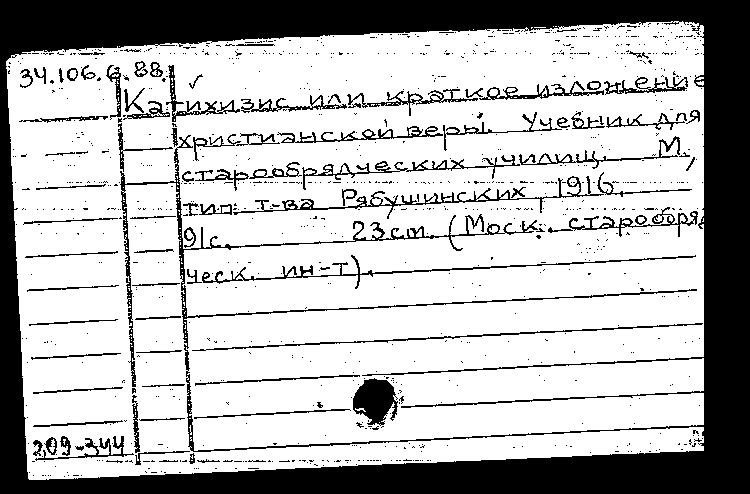 34.106.6.88.
Катихизис или краткое изложение
христианской веры. Учебник для
старообрядческих училищ. М.,
тип. т-ва Рябушинских, 1916.
91с. 23см. (Моск. старообряд
ческ. ин-т).
209-344